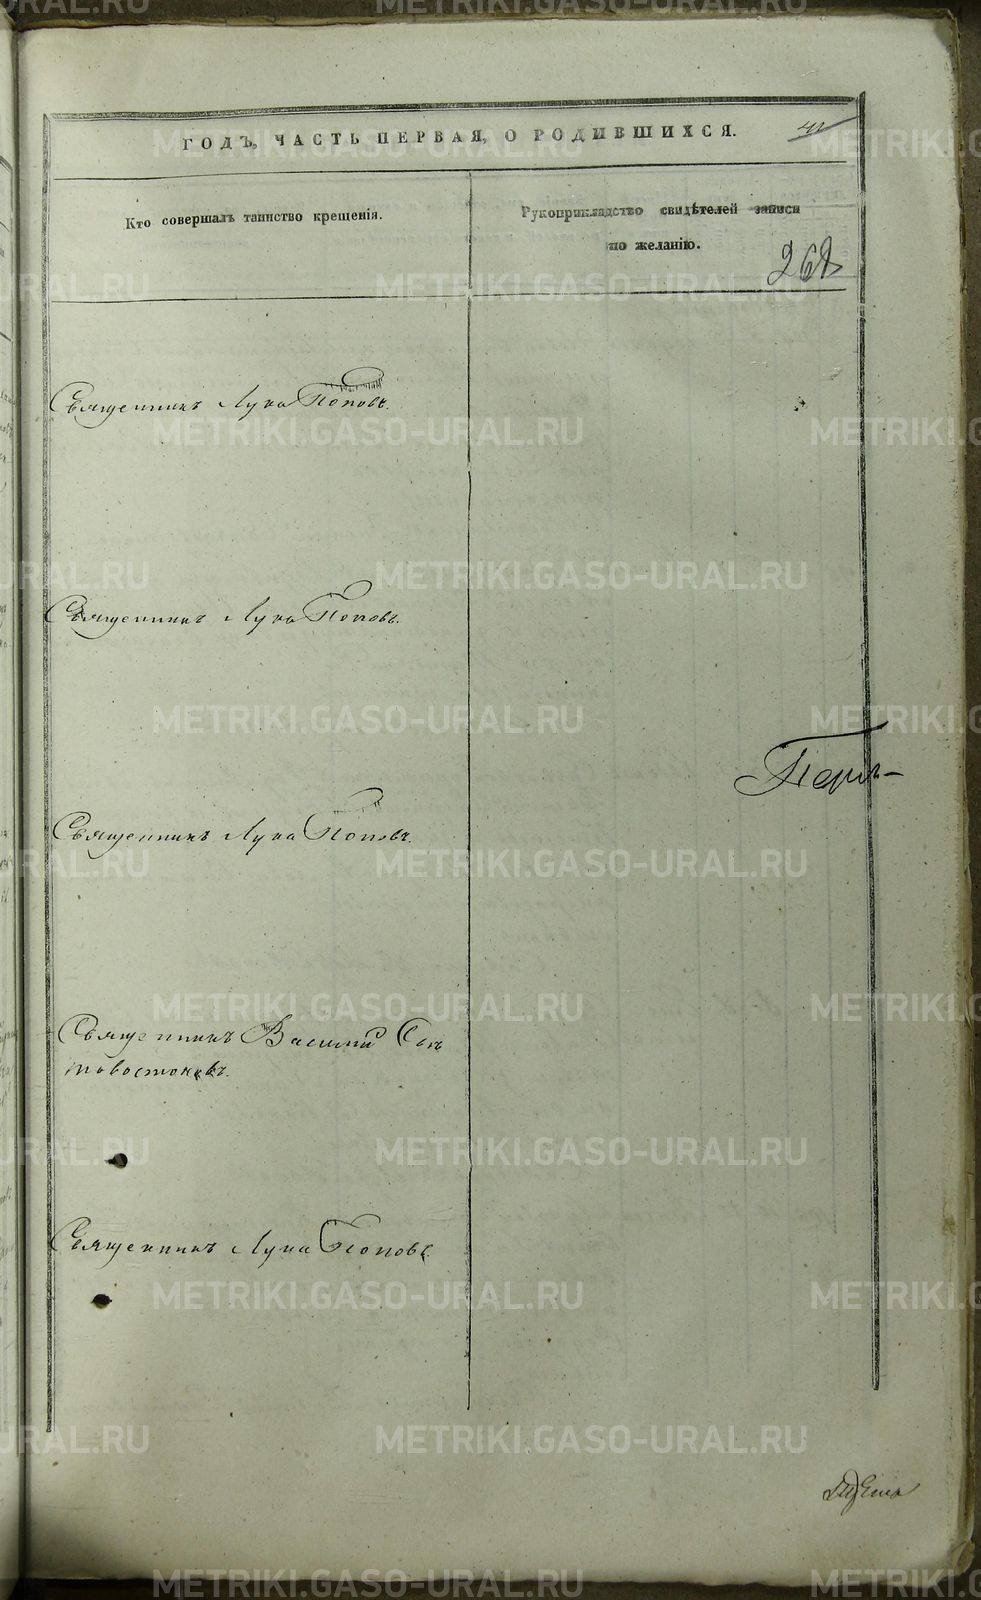 ГОДЪ, ЧАСТЬ ПЕРВАЯ, О РОДИВШИХСЯ.
Кто совершалъ таинство крещенія.
Рукоприкладство свидѣтелей записи
по желанію.
268
Священникъ Лука Поповъ.
Священникъ Лука Поповъ.
Священникъ Лука Поповъ.
Священникъ Василий
Священникъ Лука Поповъ.
METRIKI.GASO-URAL.RU